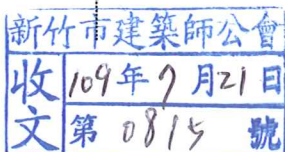 新竹市建築師公會
收文
109年7月21日
第0815號